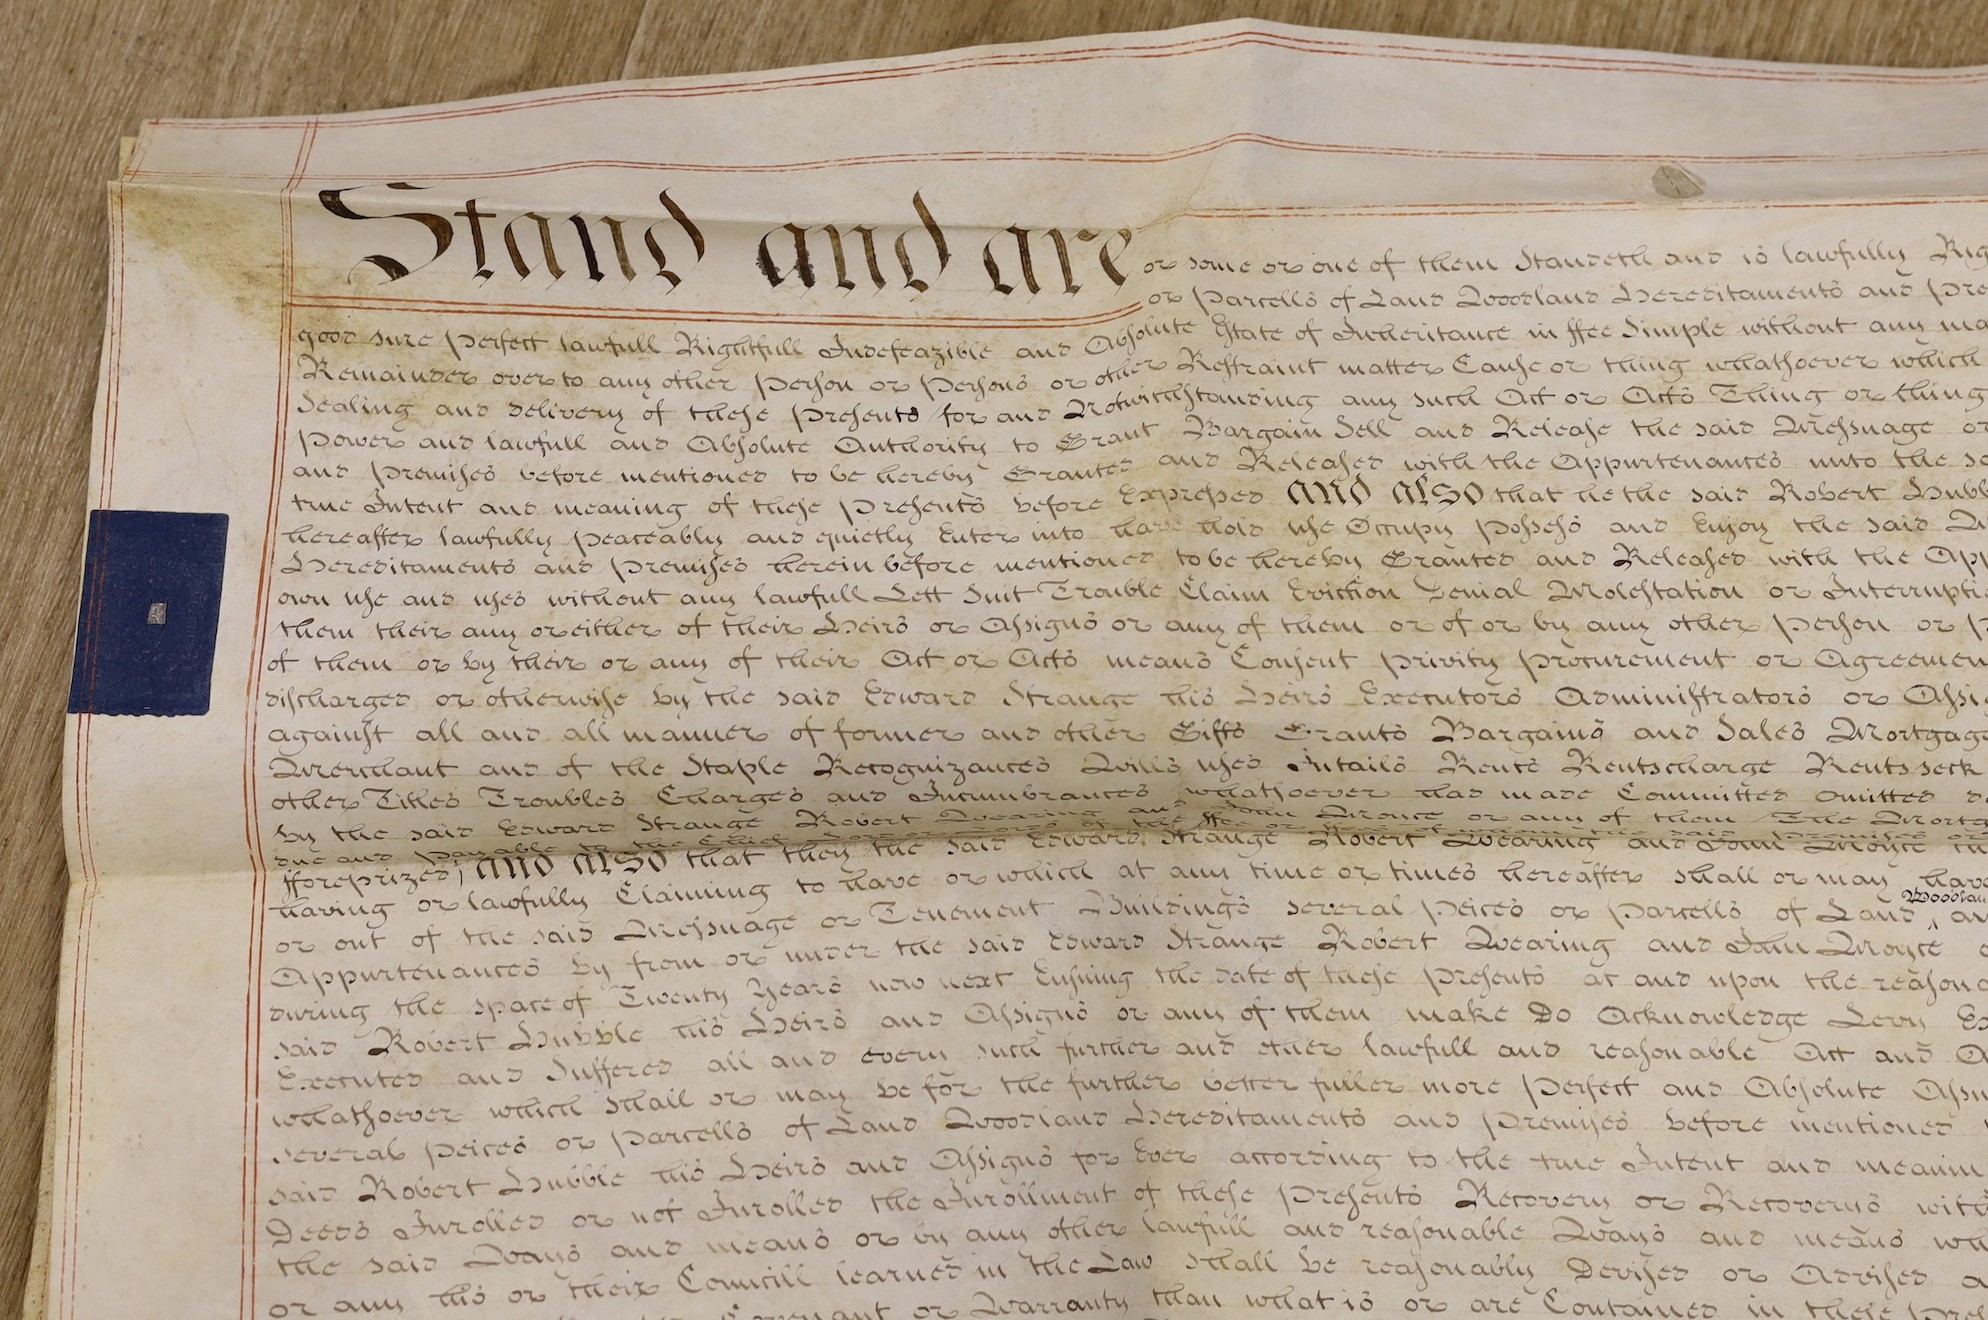 Stand and are or some or one of them Standeth and is lawfully Rig
or Parcells of Land Woodland Hereditaments and Pre
good sure Perfect lawfull Rightfull Indefeazible and Absolute Estate of Inheritance in ffee Simple without any ma
Remainder over to any other Person or Persons or other Restraint matter Cause or thing whatsoever which
Sealing and delivery of these Presents for and Notwithstanding any such Act or Acts Thing or thing
Power and lawfull and Absolute Authority to Grant Bargain Sell and Release the said Messuage or
and Premises before mentioned to be hereby Granted and Released with the Appurtenances unto the sa
true Intent and meaning of these Presents before Expressed And also that he the said Robert Hubb
hereafter lawfully peaceably and quietly Enter into have hold use Occupy Possess and Enjoy the said M
Hereditaments and Premises herein before mentioned to be hereby Granted and Released with the App
own use and uses without any lawfull Lett Suit Trouble Claim Eviction Denial Molestation or Interruptio
them their any or either of their Heirs or Assigns or any of them or of or by any other Person or P
of them or by their or any of their Act or Acts means Consent privity procurement or Agreemen
discharged or otherwise by the said Edward Strange his Heirs Executors Administrators or Assi
against all and all manner of former and other Gifts Grants Bargains and Sales Mortgage
Merchant and of the Staple Recognizances Wills uses Intails Rents Rentscharge Rents seck
other Titles Troubles Charges and Incumbrances whatsoever had made Committed omitted d
by the said Edward Strange Robert Wearing and John Moyce or any of them The Mortg
due and payable to the Chief Lord or Lords of the ffee or ffees of the said Premises
fforeprized) And also that they the said Edward Strange Robert Wearing and John Moyce th
having or lawfully Claiming to have or which at any time or times hereafter shall or may have
or out of the said Messuage or Tenement Buildings several Peices or Parcells of Land Woodlan an
Appurtenances by from or under the said Edward Strange Robert Wearing and John Moyce
during the space of Twenty Years now next Ensuing the date of these Presents at and upon the reason
said Robert Hubble his Heirs and Assigns or any of them make Do Acknowledge Levy Ex
Executed and Suffered all and every such further and other lawfull and reasonable Act and A
whatsoever which shall or may be for the further better fuller more Perfect and Absolute Assu
several Peices or Parcells of Land Woodland Hereditaments and Premises before mentioned
said Robert Hubble his Heirs and Assigns for Ever according to the true Intent and meanin
Deeds Inrolled or not Inrolled the Inrollment of these Presents Recovery or Recoverys with
the said Ways and means or by any other lawfull and reasonable Ways and means wh
or any his or their Councill learned in the Law shall be reasonably Devised or Advised a
Covenant or Warranty than what is or are Contained in these Pres